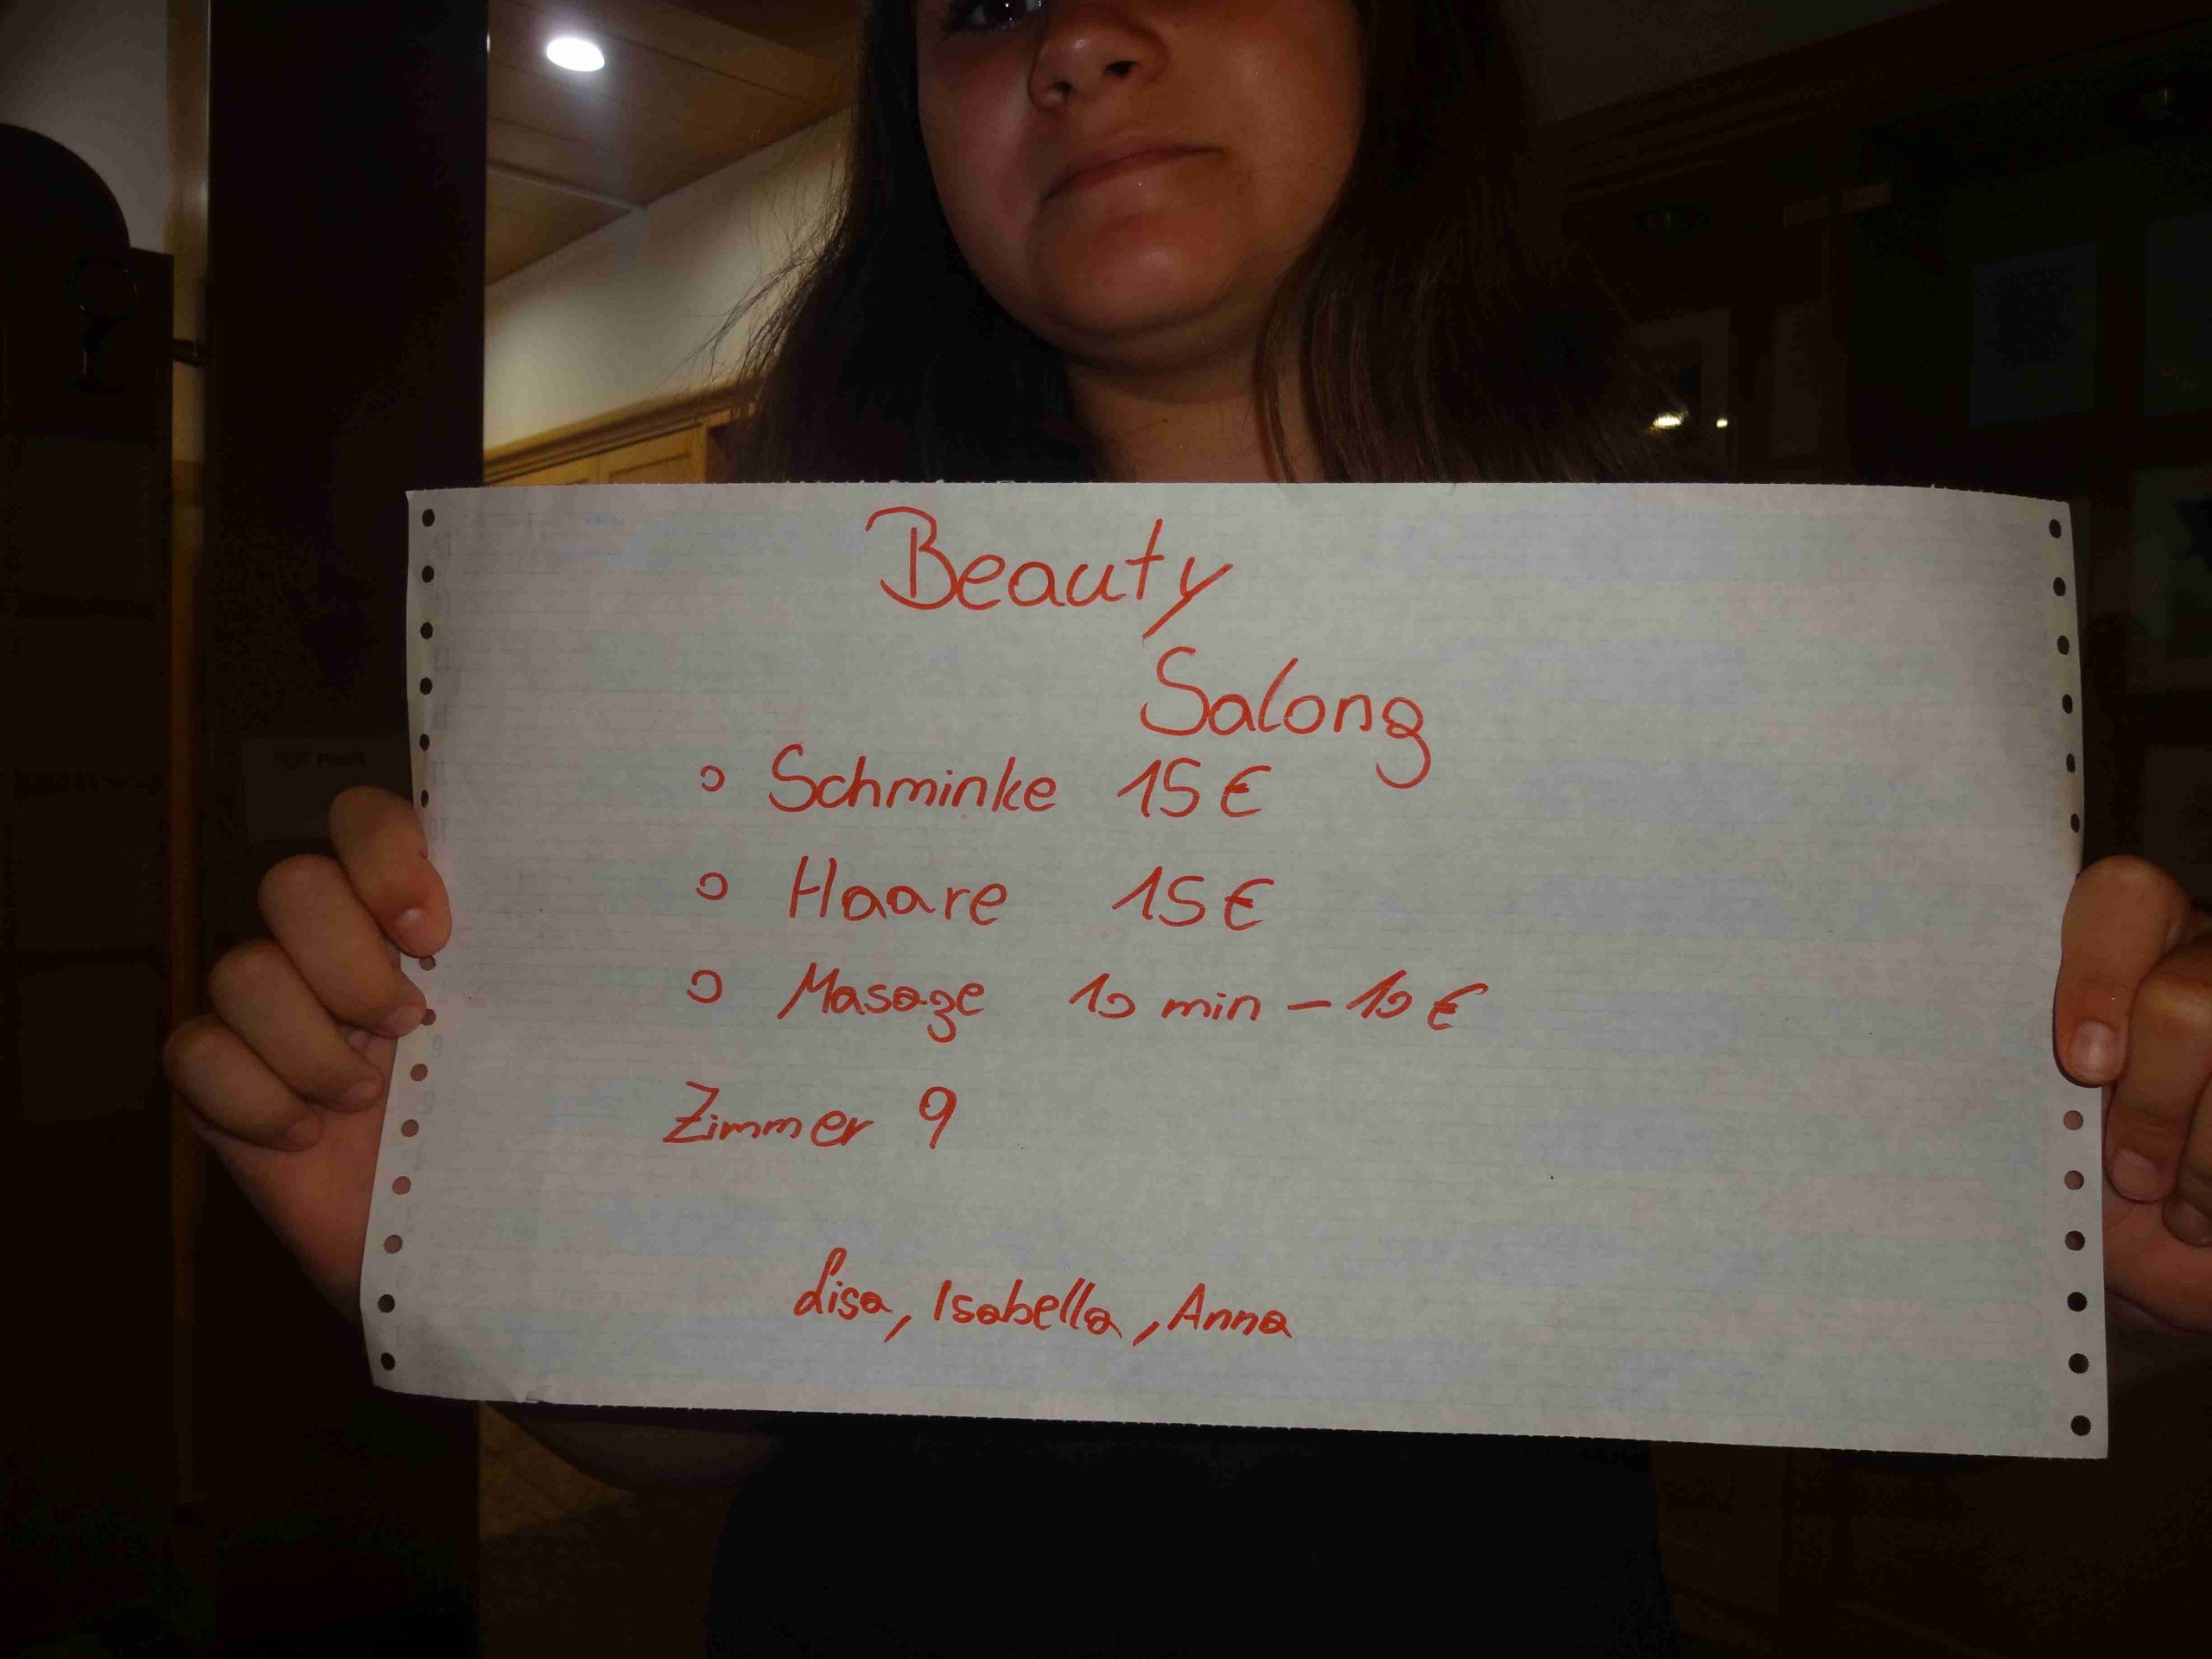 Beauty
Salong
Schminke 15€
Haare 15€
Masage 10 min - 10€
Zimmer 9
Lisa, Isabella, Anna